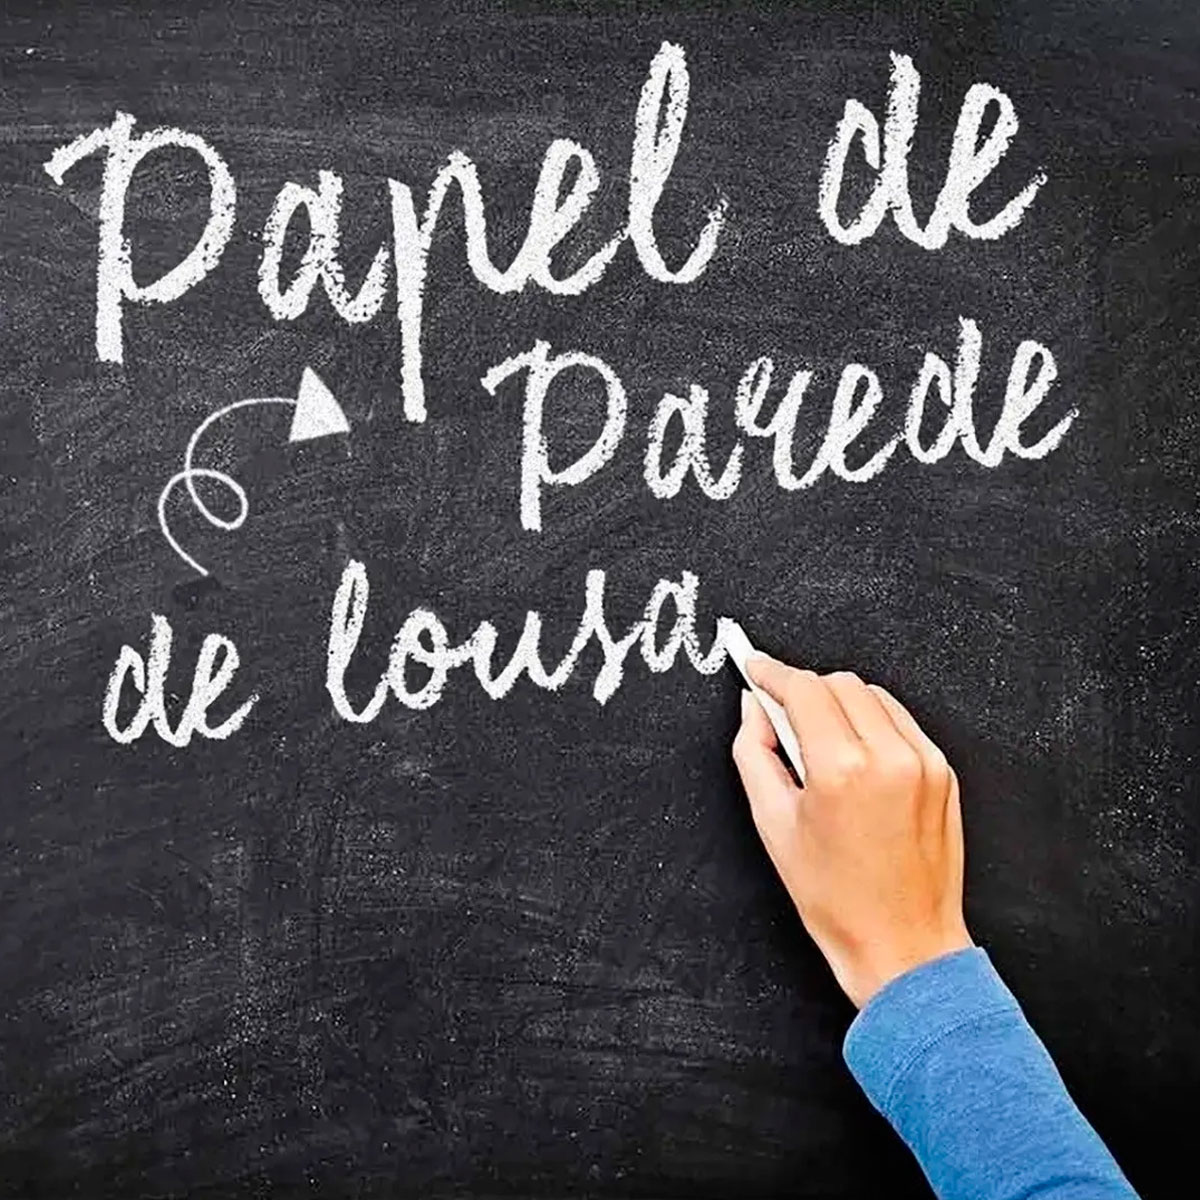 Papel de
Parede
de lousa